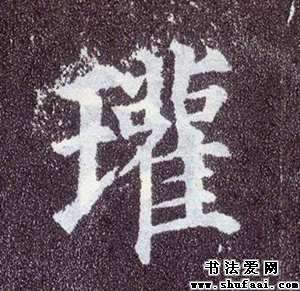 瓘
书法爱网
www.shufaai.com